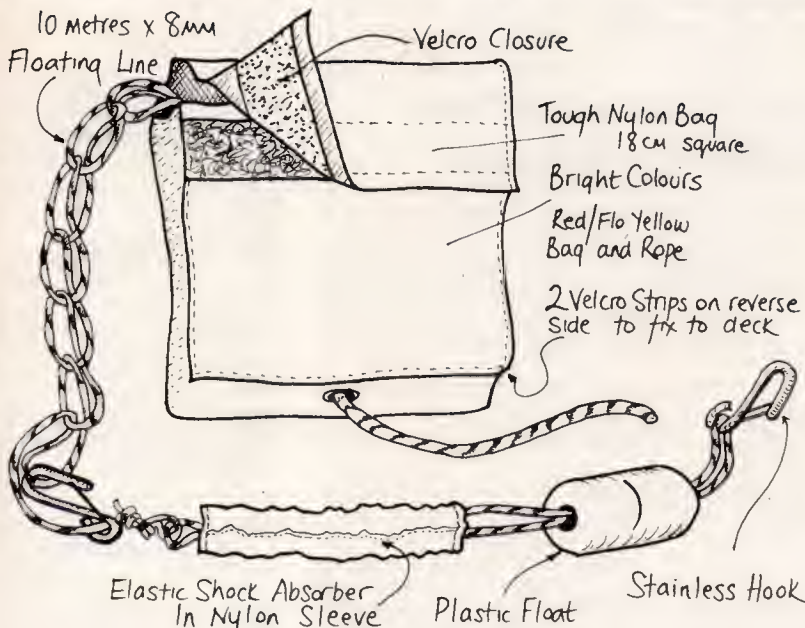 10 metres x 8mm
Floating Line
Velcro Closure
Tough Nylon Bag
18cm square
Bright Colours
Red/Flo Yellow
Bag and Rope
2 Velcro Strips on reverse
side to fix to deck
Elastic Shock Absorber
In Nylon Sleeve
Plastic Float
Stainless Hook